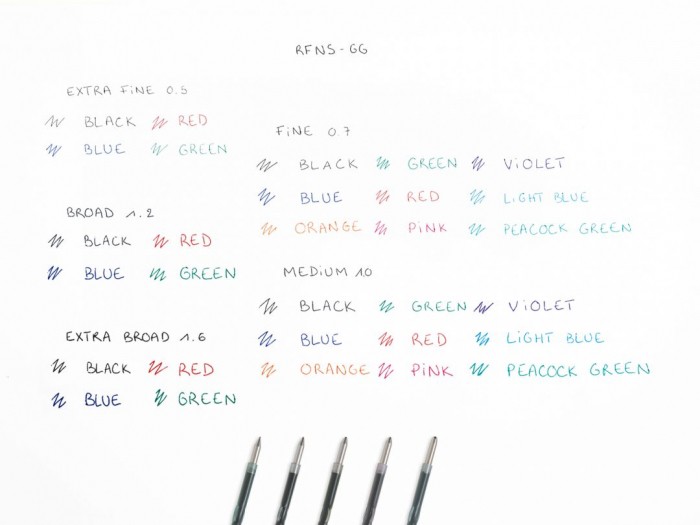 RFNS-GG
EXTRA FINE 0.5
BLACK RED
BLUE GREEN
BROAD 1.2
BLACK RED
BLUE GREEN
EXTRA BROAD 1.6
BLACK RED
BLUE GREEN
FINE 0.7
BLACK GREEN VIOLET
BLUE RED LIGHT BLUE
ORANGE PINK PEACOCK GREEN
MEDIUM 1.0
BLACK GREEN VIOLET
BLUE RED LIGHT BLUE
ORANGE PINK PEACOCK GREEN